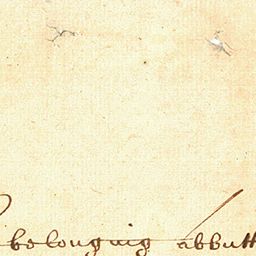 belonging abbutt